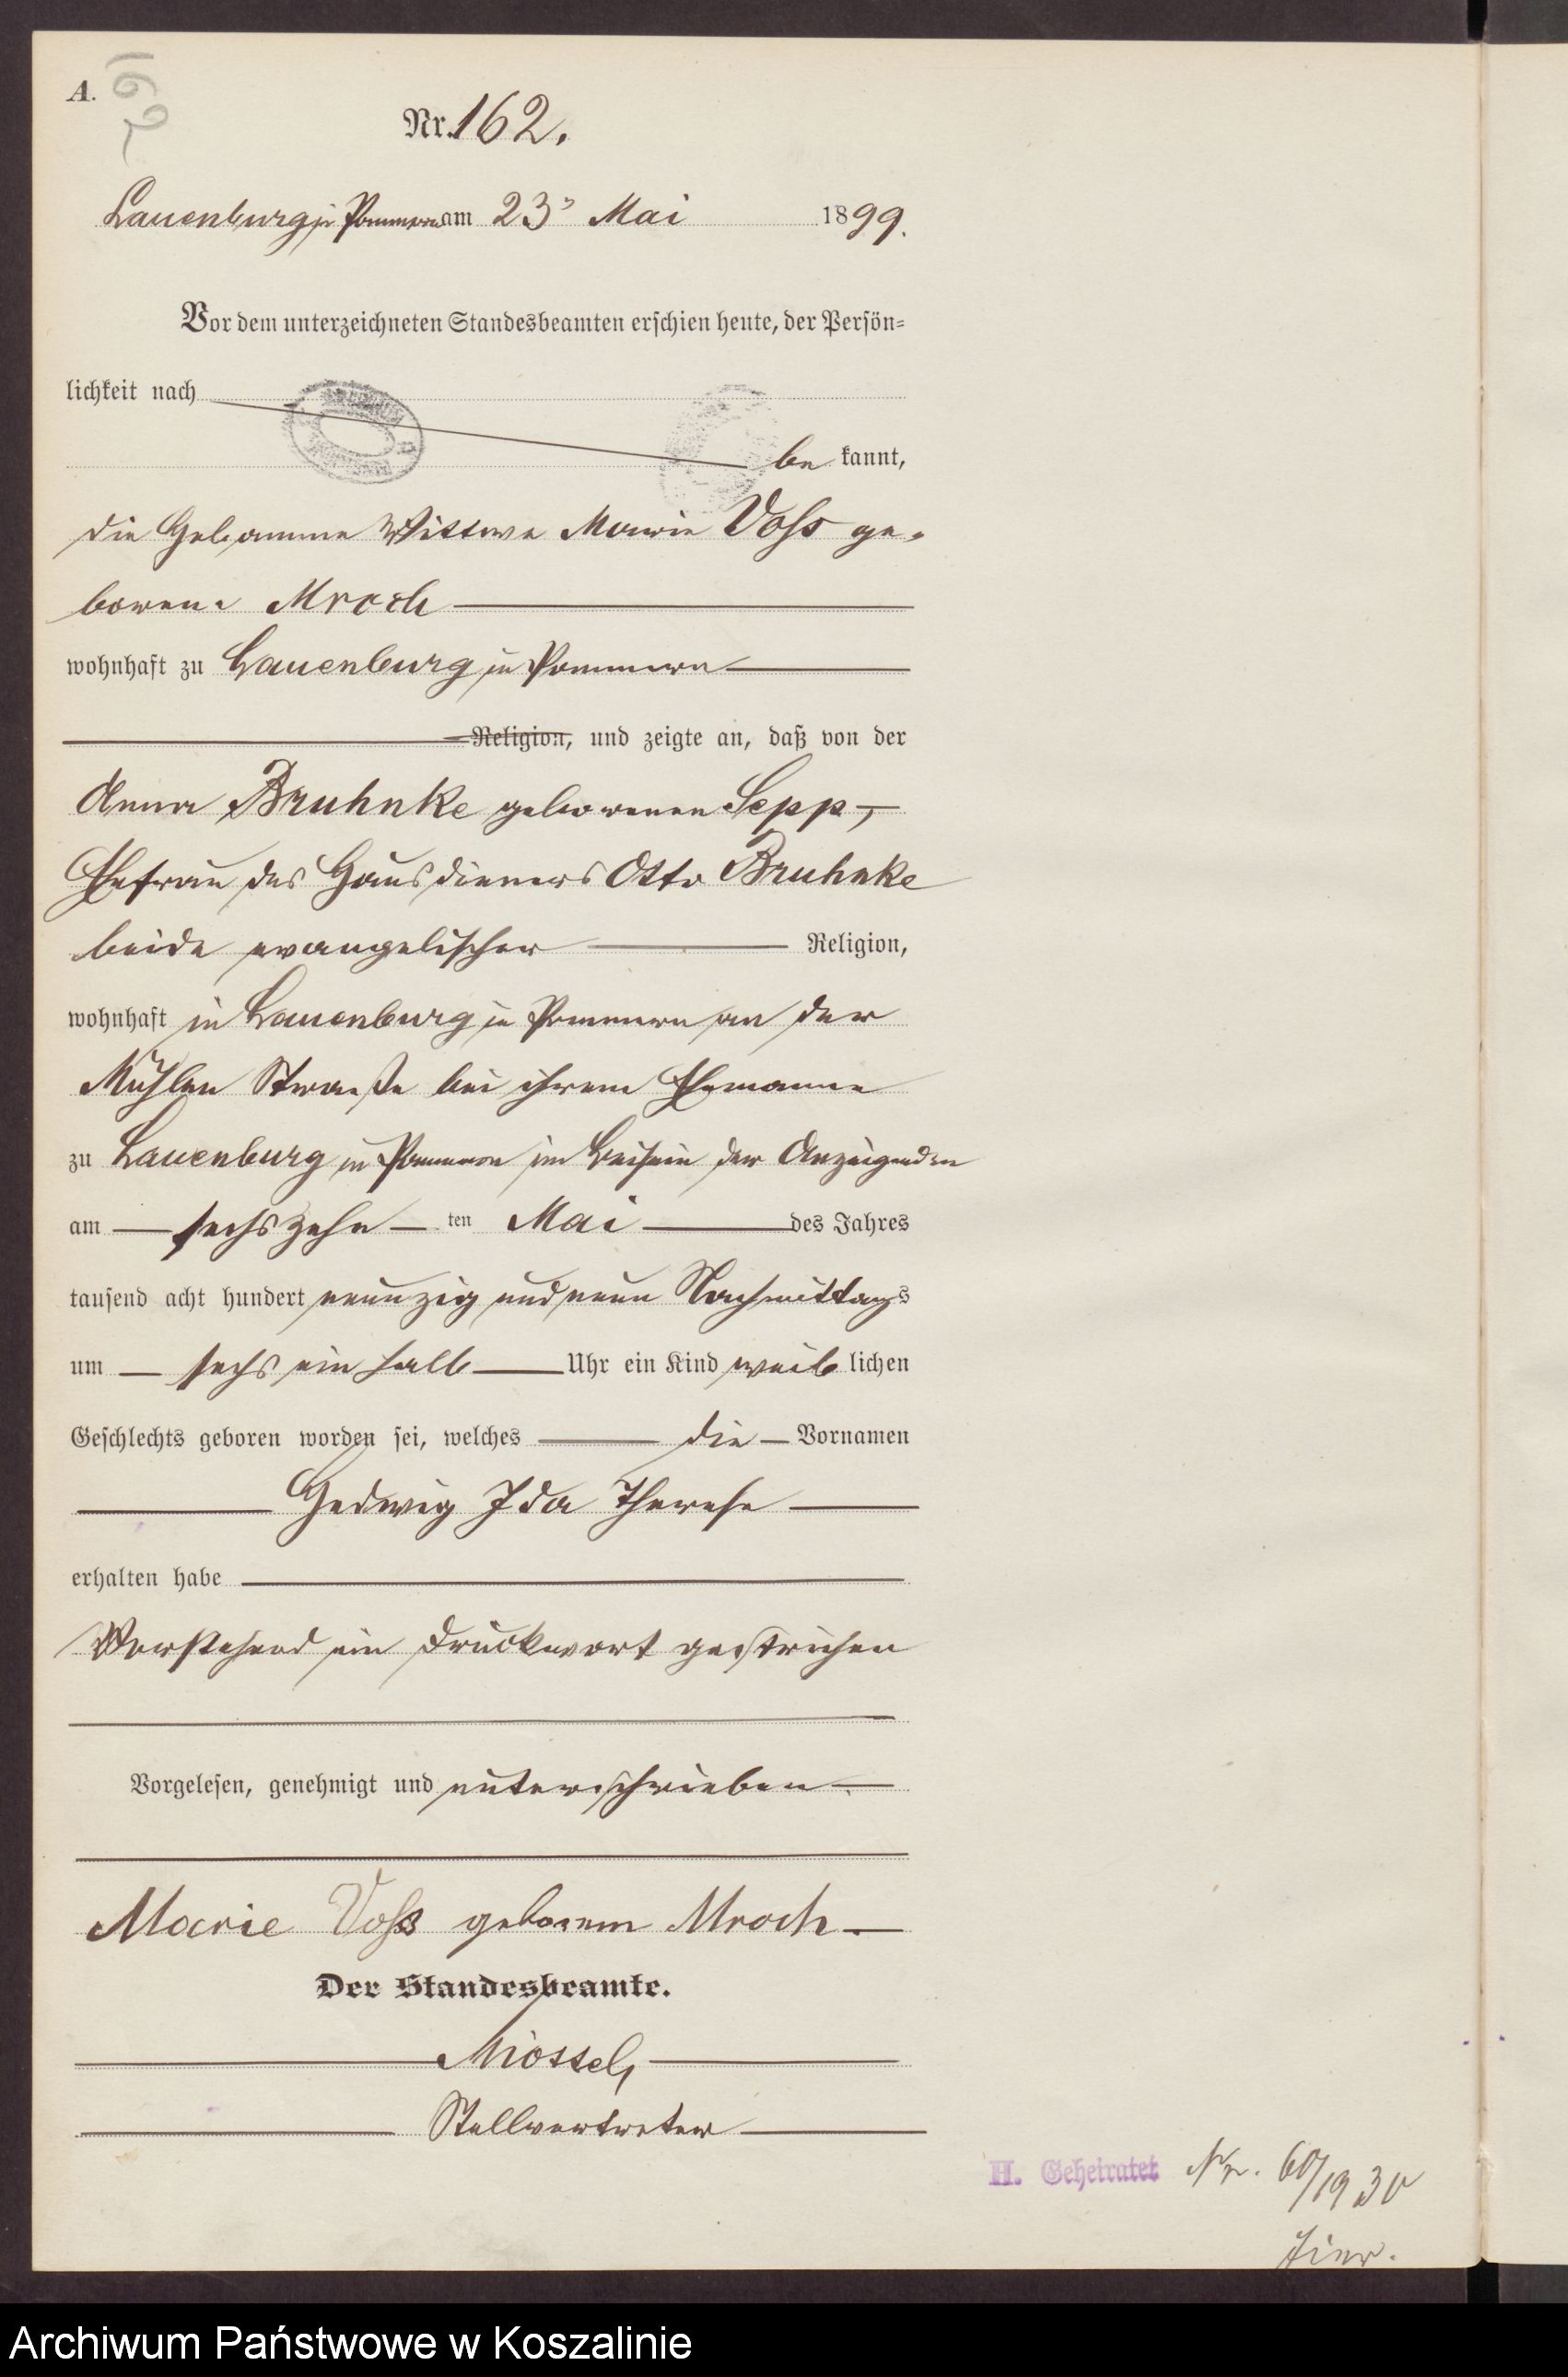 A.
162
Nr. 162.
Lauenburg in Pommern am 23ᵗ Mai 1899.
Vor dem unterzeichneten Standesbeamten erschien heute, der Persön-
lichkeit nach
be kannt,
die Hebamme Wittwe Marie Voss ge-
borene Mroch
wohnhaft zu Lauenburg in Pommern
Religion, und zeigte an, daß von der
Anna Bruhnke geborenen Sepp,
Ehefrau des Hausdieners Otto Bruhnke
beide evangelischer Religion,
wohnhaft in Lauenburg in Pommern an der
Mühlen Straße bei ihrem Ehemanne
zu Lauenburg in Pommern im Beisein der Anzeigenden
am sechszehn ten Mai des Jahres
tausend acht hundert neunzig und neun Nachmittags
um sechs ein halb Uhr ein Kind weib lichen
Geschlechts geboren worden sei, welches die Vornamen
Hedwig Ida Therese
erhalten habe
Vorstehend ein Druckwort gestrichen
Vorgelesen, genehmigt und unterschrieben
Marie Voss geborene Mroch
Der Standesbeamte.
Miossel,
Stellvertreter
H. Geheiratet Nr. 60/1930
hier.
Archiwum Państwowe w Koszalinie